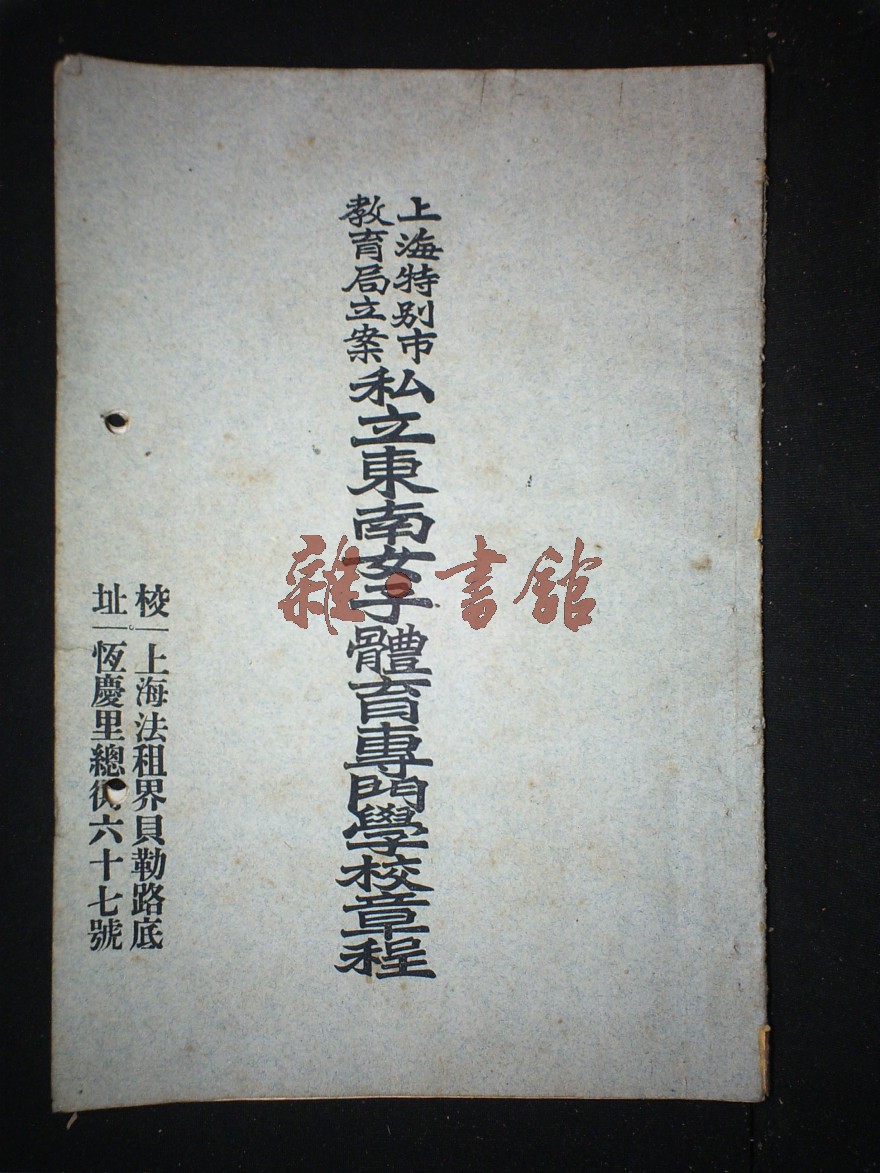 上海特別市
教育局立案
私立東南女子體育專門學校章程
校
址
上海法租界貝勒路底
恆慶里總衖六十七號
雜·書館